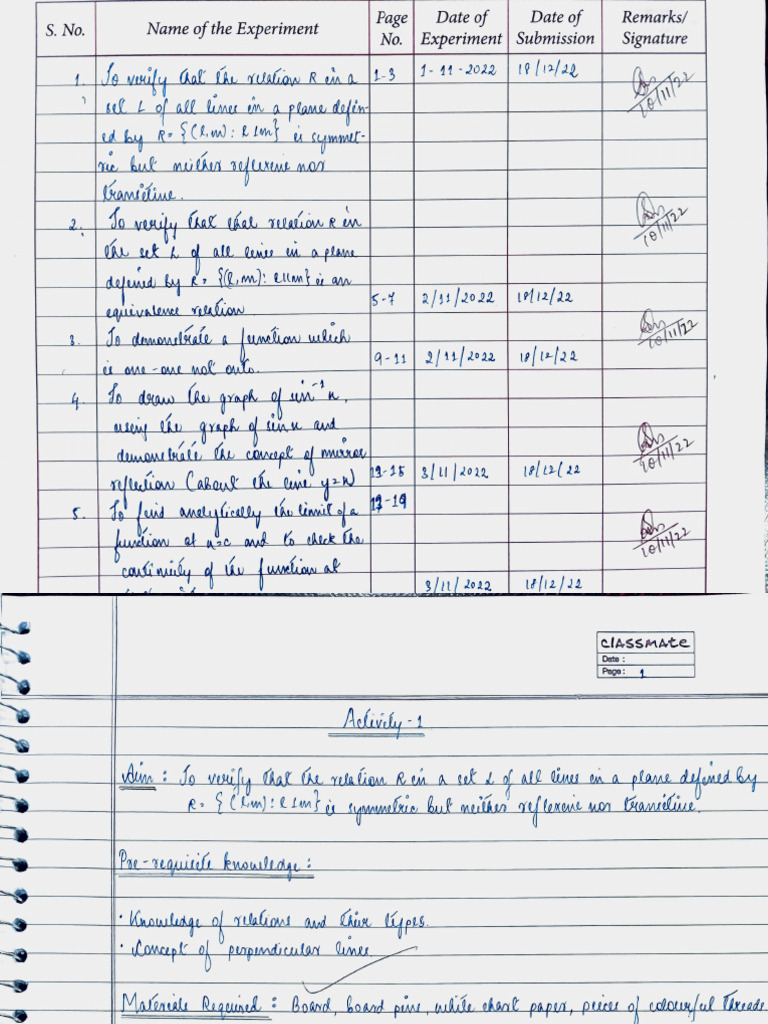 S. No. Name of the Experiment Page No. Date of Experiment Date of Submission Remarks/ Signature
1. To verify that the relation R in a 1-3 1-11-2022 18/12/22
set L of all lines in a plane defin- 10/11/22
ed by R = {(l,m): l⊥m} is symmet-
ric but neither reflexive nor
transitive.
2. To verify that that relation R in 10/11/22
the set L of all lines in a plane
defined by R = {(l,m): l||m} is an
equivalence relation. 5-7 2/11/2022 18/12/22
3. To demonstrate a function which 10/11/22
is one-one not onto. 9-11 2/11/2022 18/12/22
4. To draw the graph of sin⁻¹x,
using the graph of sin x and
demonstrate the concept of mirror 10/11/22
reflection (about the line y=x) 13-15 3/11/2022 18/12/22
5. To find analytically the limit of a 17-19
function at x=c and to check the 10/11/22
continuity of the function at
3/11/2022 18/12/22
CLASSMATE
Date :
Page : 1
Activity-1
Aim : To verify that the relation R in a set L of all lines in a plane defined by
R = {(l,m): l⊥m} is symmetric but neither reflexive nor transitive.
Pre-requisite knowledge :
· Knowledge of relations and their types.
· Concept of perpendicular lines.
Materials Required : Board, board pins, white chart paper, pieces of colourful threads